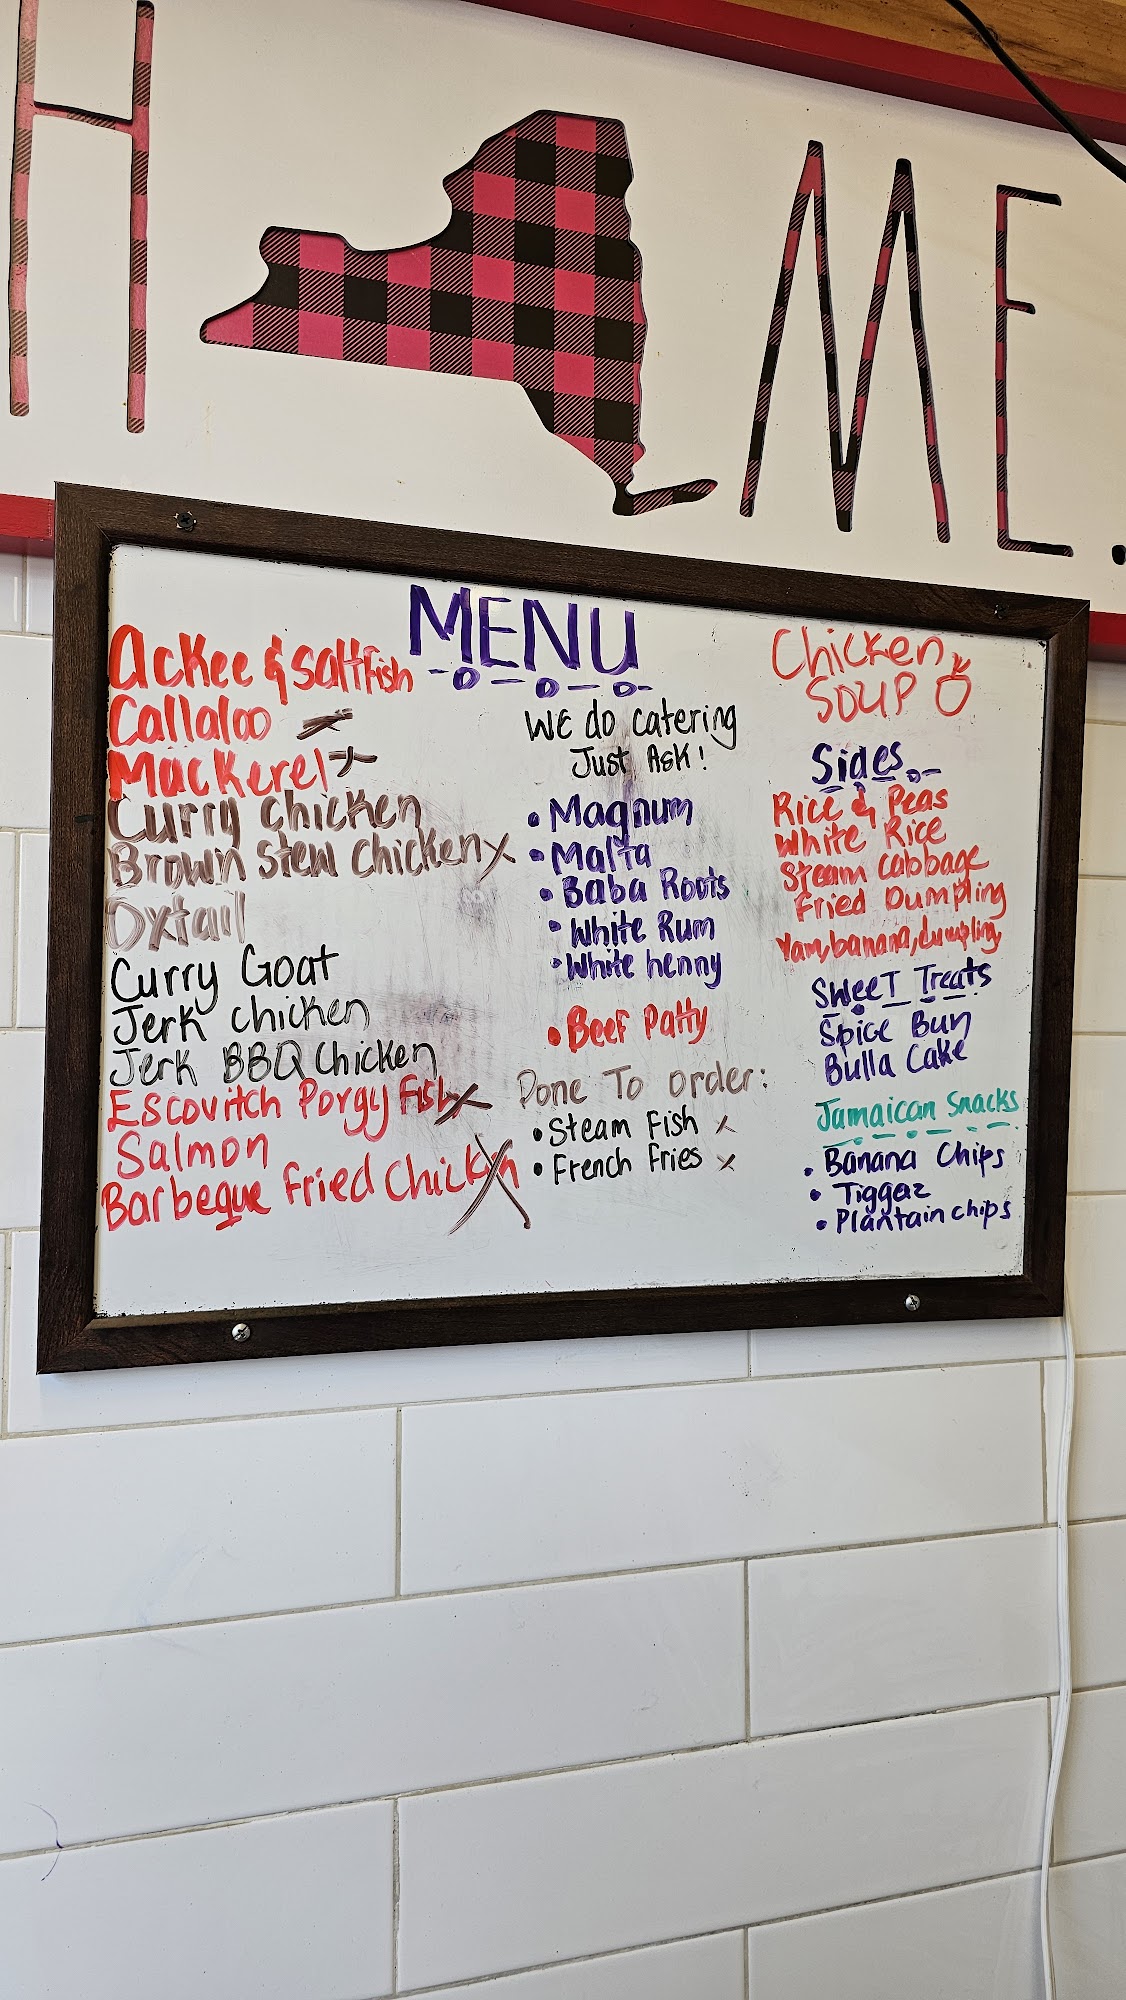 H ME.
MENU
Ackee & Saltfish
Callaloo x
Mackerel x
Curry Chicken
Brown Stew Chicken x
Oxtail
Curry Goat
Jerk Chicken
Jerk BBQ Chicken
Escovitch Porgy Fish x
Salmon
Barbeque Fried Chicken x
WE do catering
Just Ask!
• Magnum
• Malta
• Baba Roots
• White Rum
• White henny
• Beef Patty
Done To order:
• Steam Fish x
• French Fries x
Chicken
SOUP
Sides
Rice & Peas
White Rice
Steam Cabbage
Fried Dumpling
Yam, banana, dumpling
Sweet Treats
Spice Bun
Bulla Cake
Jamaican Snacks
• Banana Chips
• Tiggaz
• Plantain chips